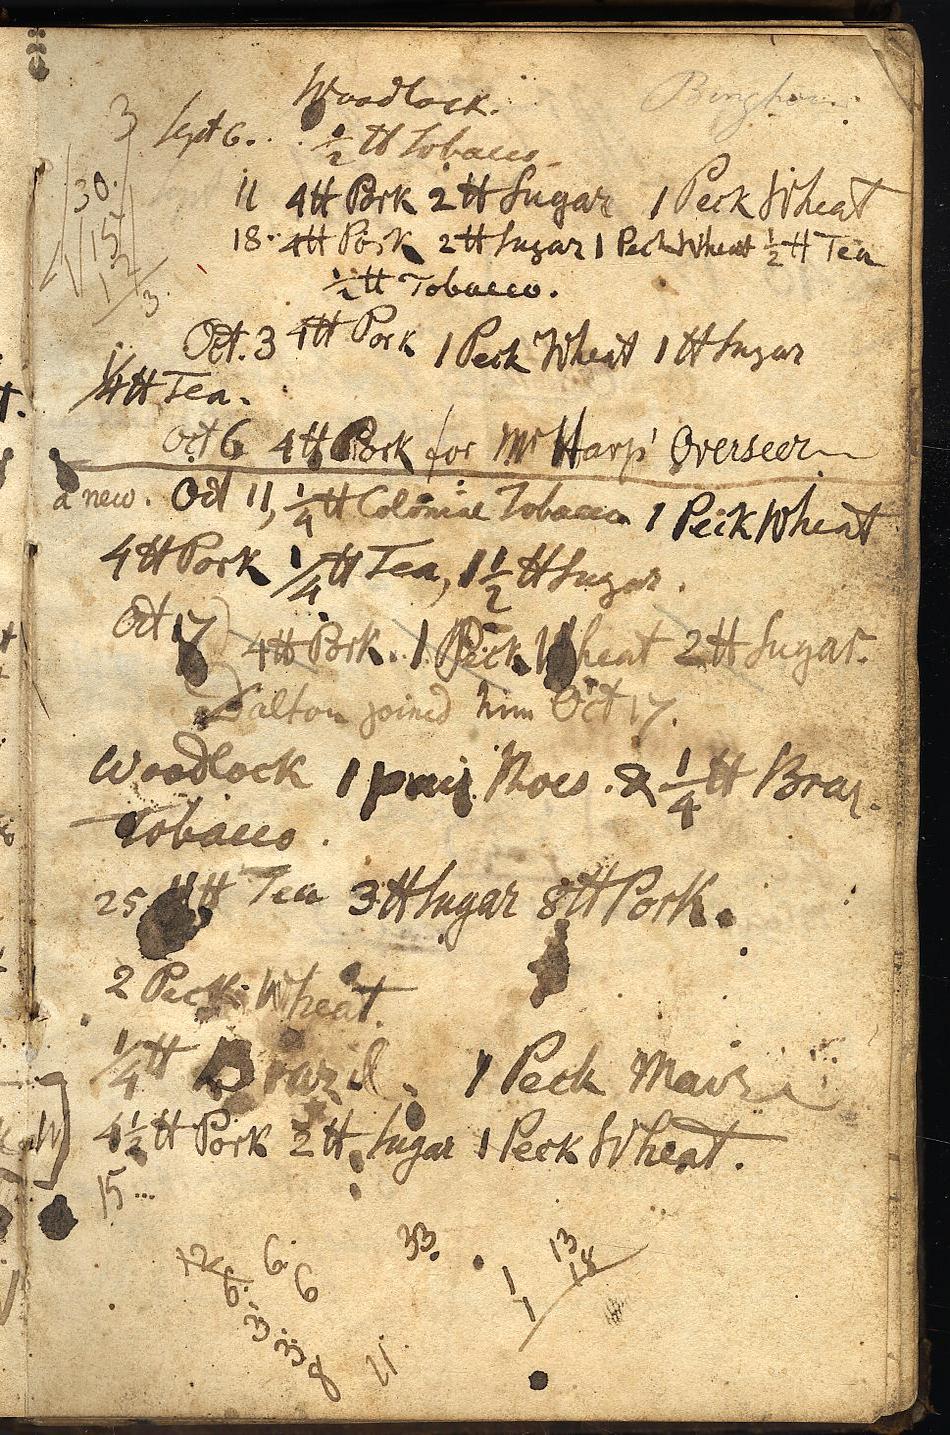 Woodlock.
Sept 6. ½ ℔ Tobacco.
11 4℔ Pork 2℔ Sugar 1 Peck Wheat
18. 4℔ Pork 2℔ Sugar 1 Peck Wheat ½℔ Tea
½℔ Tobacco.
Oct. 3 4℔ Pork 1 Peck Wheat 1℔ Sugar
¼℔ Tea.
Oct 6 4℔ Pork for Mr Harp' Overseer
a new. Oct 11, ¼℔ Colonial Tobacco 1 Peck Wheat
4℔ Pork ¼℔ Tea, 1½℔ Sugar.
Oct 17 4℔ Pork. 1 Peck Wheat 2℔ Sugar.
Dalton joined him Oct 17.
Woodlock 1 pair Shoes. & ¼℔ Braz.
Tobacco.
25 ℔ Tea 3℔ Sugar 8℔ Pork.
2 Peck Wheat.
¼℔ Brazil. 1 Peck
4½℔ Pork 2℔ Sugar 1 Peck Wheat.
15...
3
30.
15
12
3.
12 6. 6
6.
33.
13
18
1
1
3
33
8
11